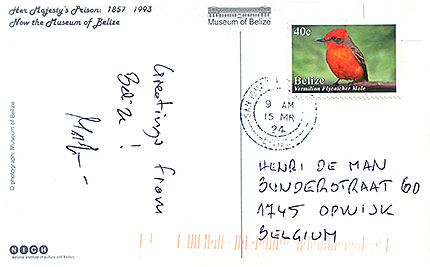 Her Majesty's Prison: 1857 1993
Now the Museum of Belize
Museum of Belize
40c
Belize
Vermilion Flycatcher Male
SAN
9 AM
15 MR
24
Greetings from
Belize!
© photograph: Museum of Belize
HENRI DE MAN
BUNDERSTRAAT 60
1745 OPWIJK
BELGIUM
NICH
National Institute of Culture and History